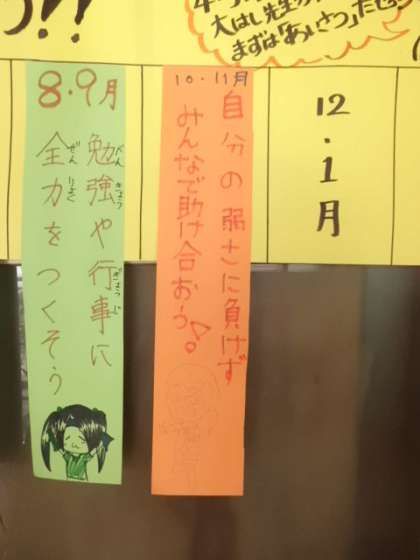 大はし先生が
まずは「あいさつ」だ
8・9月
べんきょう ぎょうじ
勉強や行事に
ぜんりょく
全力をつくそう
10・11月
自分の弱さに負けず
みんなで助け合おう!
12・1月